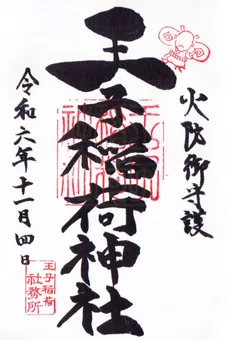 火防御守護
王子稲荷神社
令和六年十一月四日
王子稲荷
社務所